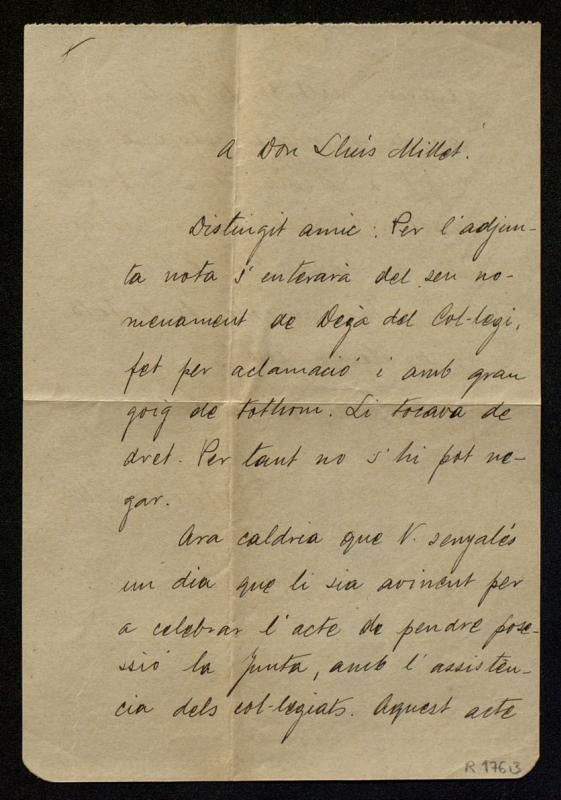 A Don Lluís Millet.
Distingit amic: Per l'adjun-
ta nota s'enterarà del seu no-
menament de Degà del Col·legi,
fet per aclamació i amb gran
goig de tothom. Li tocava de
dret. Per tant no s'hi pot ne-
gar.
Ara caldria que V. senyalés
un dia que li sia avinent per
a celebrar l'acte de pendre pose-
ssió la Junta, amb l'assistèn-
cia dels col·legiats. Aquest acte
R 176.3